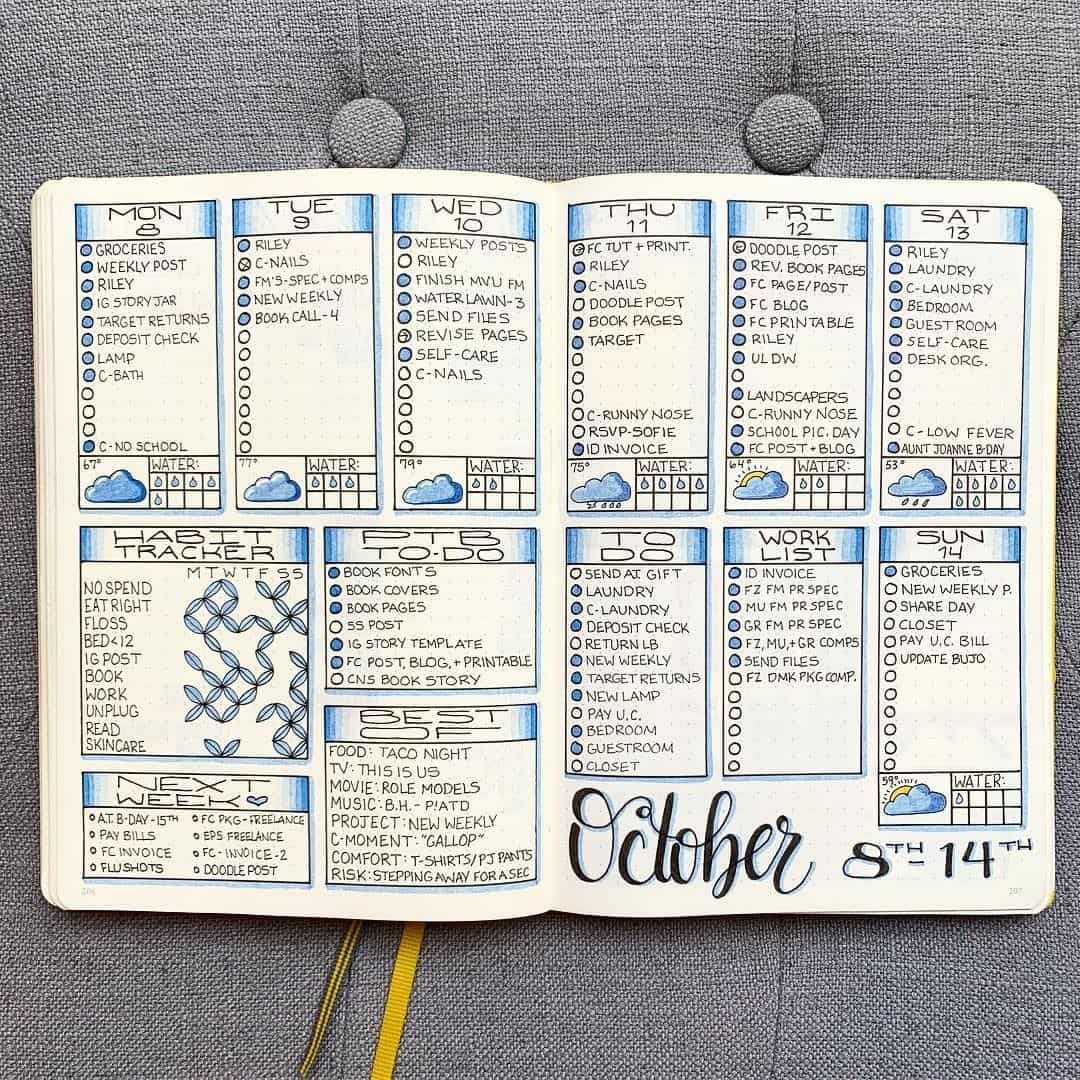 MON
8
GROCERIES
WEEKLY POST
RILEY
IG STORY JAR
TARGET RETURNS
DEPOSIT CHECK
LAMP
C-BATH
C-NO SCHOOL
67°
WATER:
TUE
9
RILEY
C-NAILS
FM'S-SPEC+COMPS
NEW WEEKLY
BOOK CALL-4
77°
WATER:
WED
10
WEEKLY POSTS
RILEY
FINISH MVU FM
WATER LAWN-3
SEND FILES
REVISE PAGES
SELF-CARE
C-NAILS
79°
WATER:
THU
11
FC TUT + PRINT.
RILEY
C-NAILS
DOODLE POST
BOOK PAGES
TARGET
C-RUNNY NOSE
RSVP-SOFIE
ID INVOICE
75°
WATER:
FRI
12
DOODLE POST
REV. BOOK PAGES
FC PAGE/POST
FC BLOG
FC PRINTABLE
RILEY
UL DW
LANDSCAPERS
C-RUNNY NOSE
SCHOOL PIC. DAY
FC POST + BLOG
64°
WATER:
SAT
13
RILEY
LAUNDRY
C-LAUNDRY
BEDROOM
GUEST ROOM
SELF-CARE
DESK ORG.
C-LOW FEVER
AUNT JOANNE B-DAY
53°
WATER:
HABIT
TRACKER
M T W T F S S
NO SPEND
EAT RIGHT
FLOSS
BED<12
IG POST
BOOK
WORK
UNPLUG
READ
SKINCARE
NEXT
WEEK
A.T. B-DAY-15TH
PAY BILLS
FC INVOICE
FLU SHOTS
FC PKG-FREELANCE
EPS FREELANCE
FC-INVOICE-2
DOODLE POST
PTB
TO-DO
BOOK FONTS
BOOK COVERS
BOOK PAGES
SS POST
IG STORY TEMPLATE
FC POST, BLOG, + PRINTABLE
CNS BOOK STORY
BEST
OF
FOOD: TACO NIGHT
TV: THIS IS US
MOVIE: ROLE MODELS
MUSIC: B.H. - P!ATD
PROJECT: NEW WEEKLY
C-MOMENT: "GALLOP"
COMFORT: T-SHIRTS/PJ PANTS
RISK: STEPPING AWAY FOR A SEC
TO
DO
SEND A.T. GIFT
LAUNDRY
C-LAUNDRY
DEPOSIT CHECK
RETURN LB
NEW WEEKLY
TARGET RETURNS
NEW LAMP
PAY U.C.
BEDROOM
GUESTROOM
CLOSET
WORK
LIST
ID INVOICE
FZ FM PR SPEC
MU FM PR SPEC
GR FM PR SPEC
FZ, MU,+GR COMPS
SEND FILES
FZ DMK PKG COMP.
SUN
14
GROCERIES
NEW WEEKLY P.
SHARE DAY
CLOSET
PAY U.C. BILL
UPDATE BUJO
59°
WATER:
October 8TH - 14TH
206
207